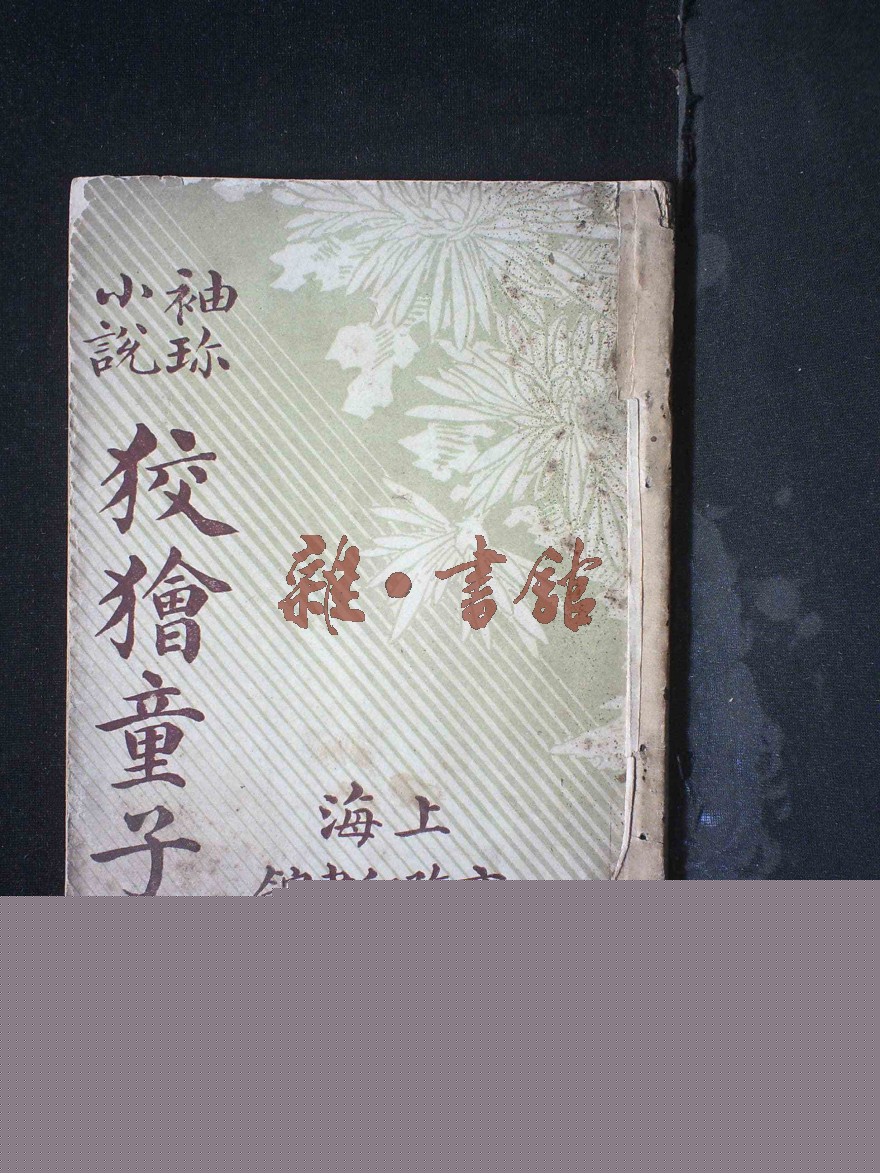 袖珍
小說
狡獪童子
雜·書館
上海